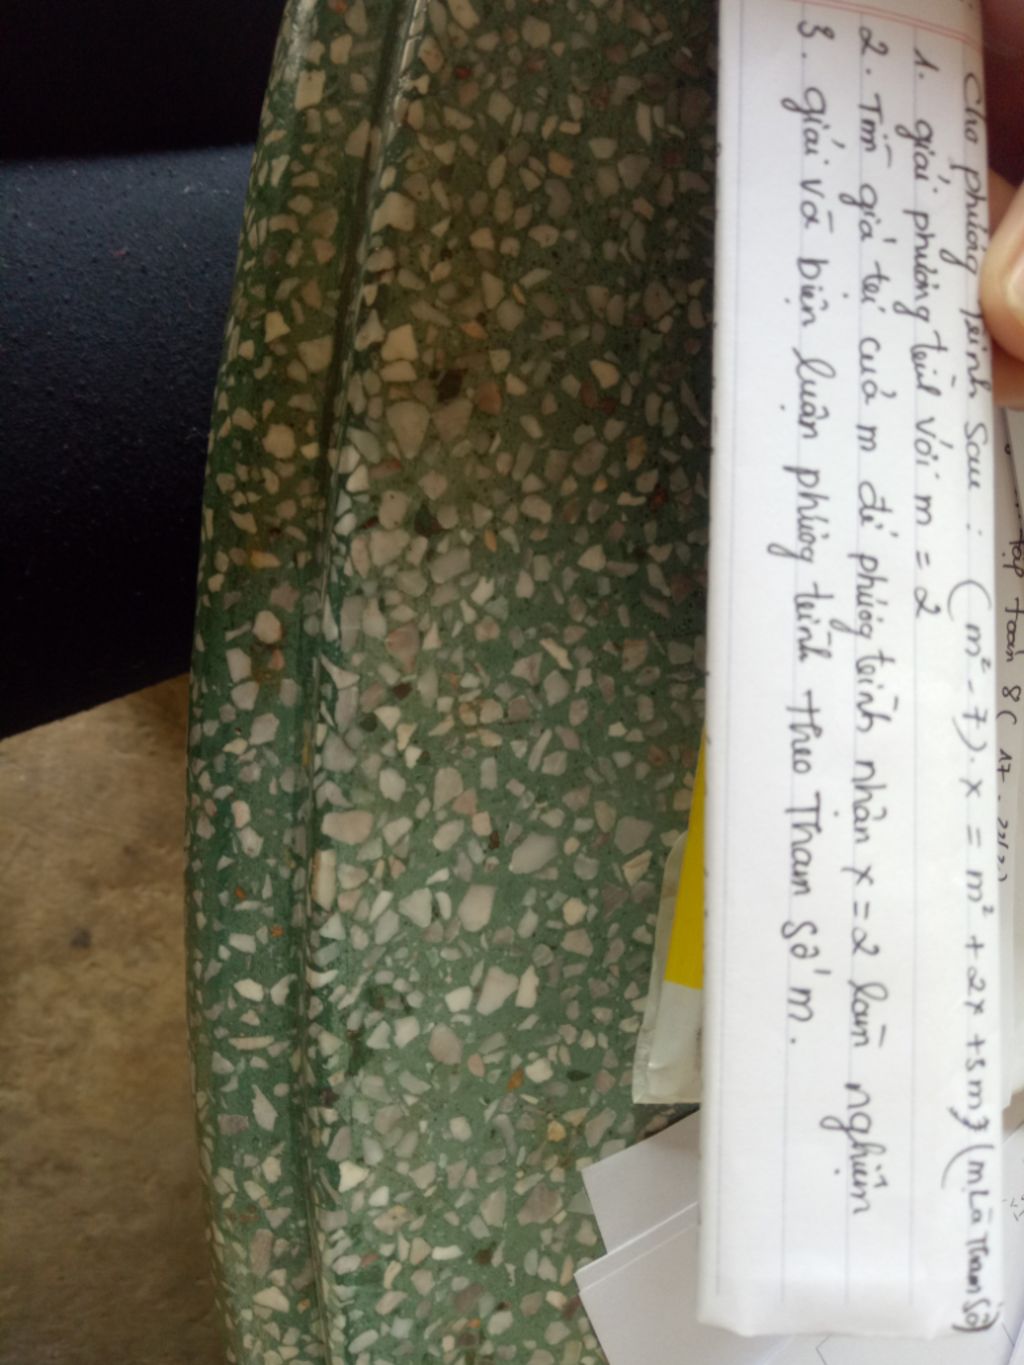 Cho phương trình sau : (m² - 7) . x = m² + 2x + 5m (m là Tham số)
1. giải phương trình với m = 2
2. Tìm giá trị của m để phương trình nhân x = 2 làm nghiệm
3. giải và biện luận phương trình theo Tham số m.
tập toán 8 ( 17